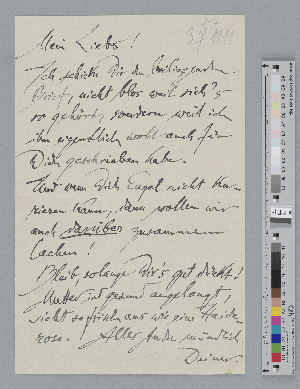 3. 7. 1911
Mein Lieber!
Ich schicke Dir den beiliegenden
Brief, nicht blos weil sich's
so gehört, sondern weil ich
ihn eigentlich wohl auch für
Dich geschrieben habe.
Und wenn Dich Engel nicht ku-
rieren kann, dann wollen wir
auch darüber zusammen
lachen!
Bleib, solange Dir's gut dünkt!
Mutter ist gesund angelangt,
sieht so frisch aus wie eine Haide-
rose. Alles Andre mündlich.
Deiner